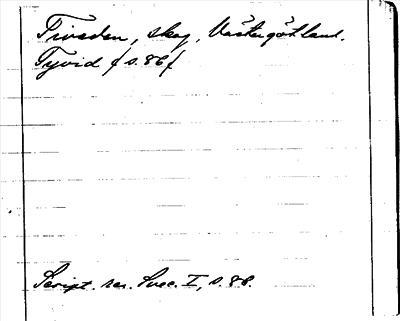 Tiveden, skog, Västergötland.
Tyvid / s. 86 /
Script. rer. Svec. I, s. 88.